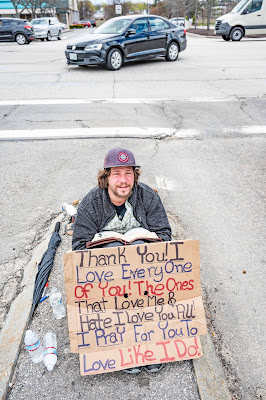 Thank You! I
Love Every One
Of You! The Ones
That Love Me &
Hate I Love You All!
I Pray For You To
Love Like I Do!